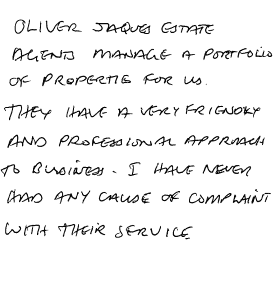 OLIVER JAQUES ESTATE
AGENTS MANAGE A PORTFOLIO
OF PROPERTIE FOR US.
THEY HAVE A VERY FRIENDLY
AND PROFESSIONAL APPROACH
TO BUSINESS. I HAVE NEVER
HAD ANY CAUSE OF COMPLAINT
WITH THEIR SERVICE